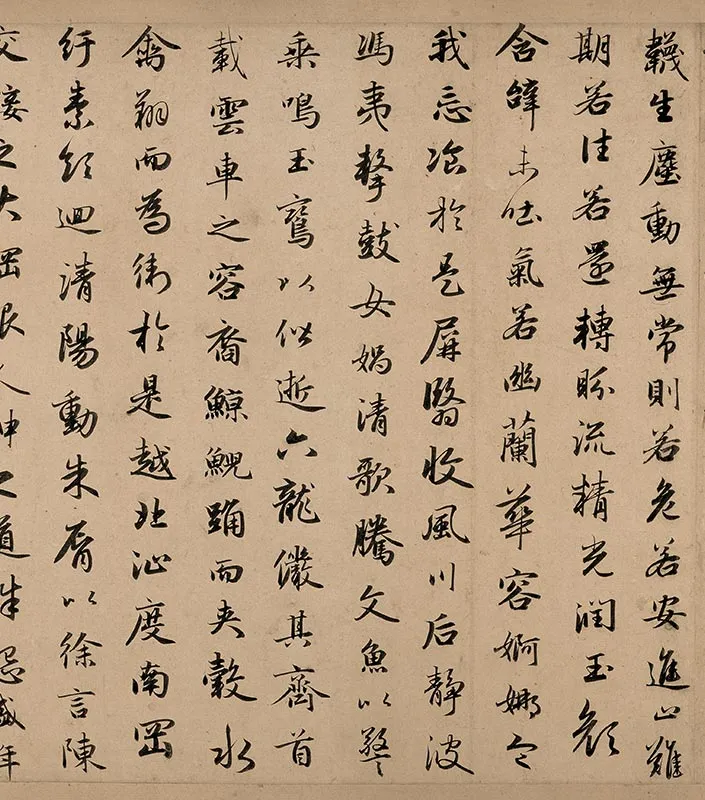 韈生塵動無常則若危若安進止難
期若往若還轉眄流精光潤玉顏
含辭未吐氣若幽蘭華容婀娜令
我忘飡於是屏翳收風川后靜波
馮夷擊鼓女媧清歌騰文魚以警
乘鳴玉鸞以偕逝六龍儼其齊首
載雲車之容裔鯨鯢踊而夾轂水
禽翔而為衛於是越北沚度南岡
紆素領迴清陽動朱脣以徐言陳
交接之大綱恨人神之道殊怨盛年